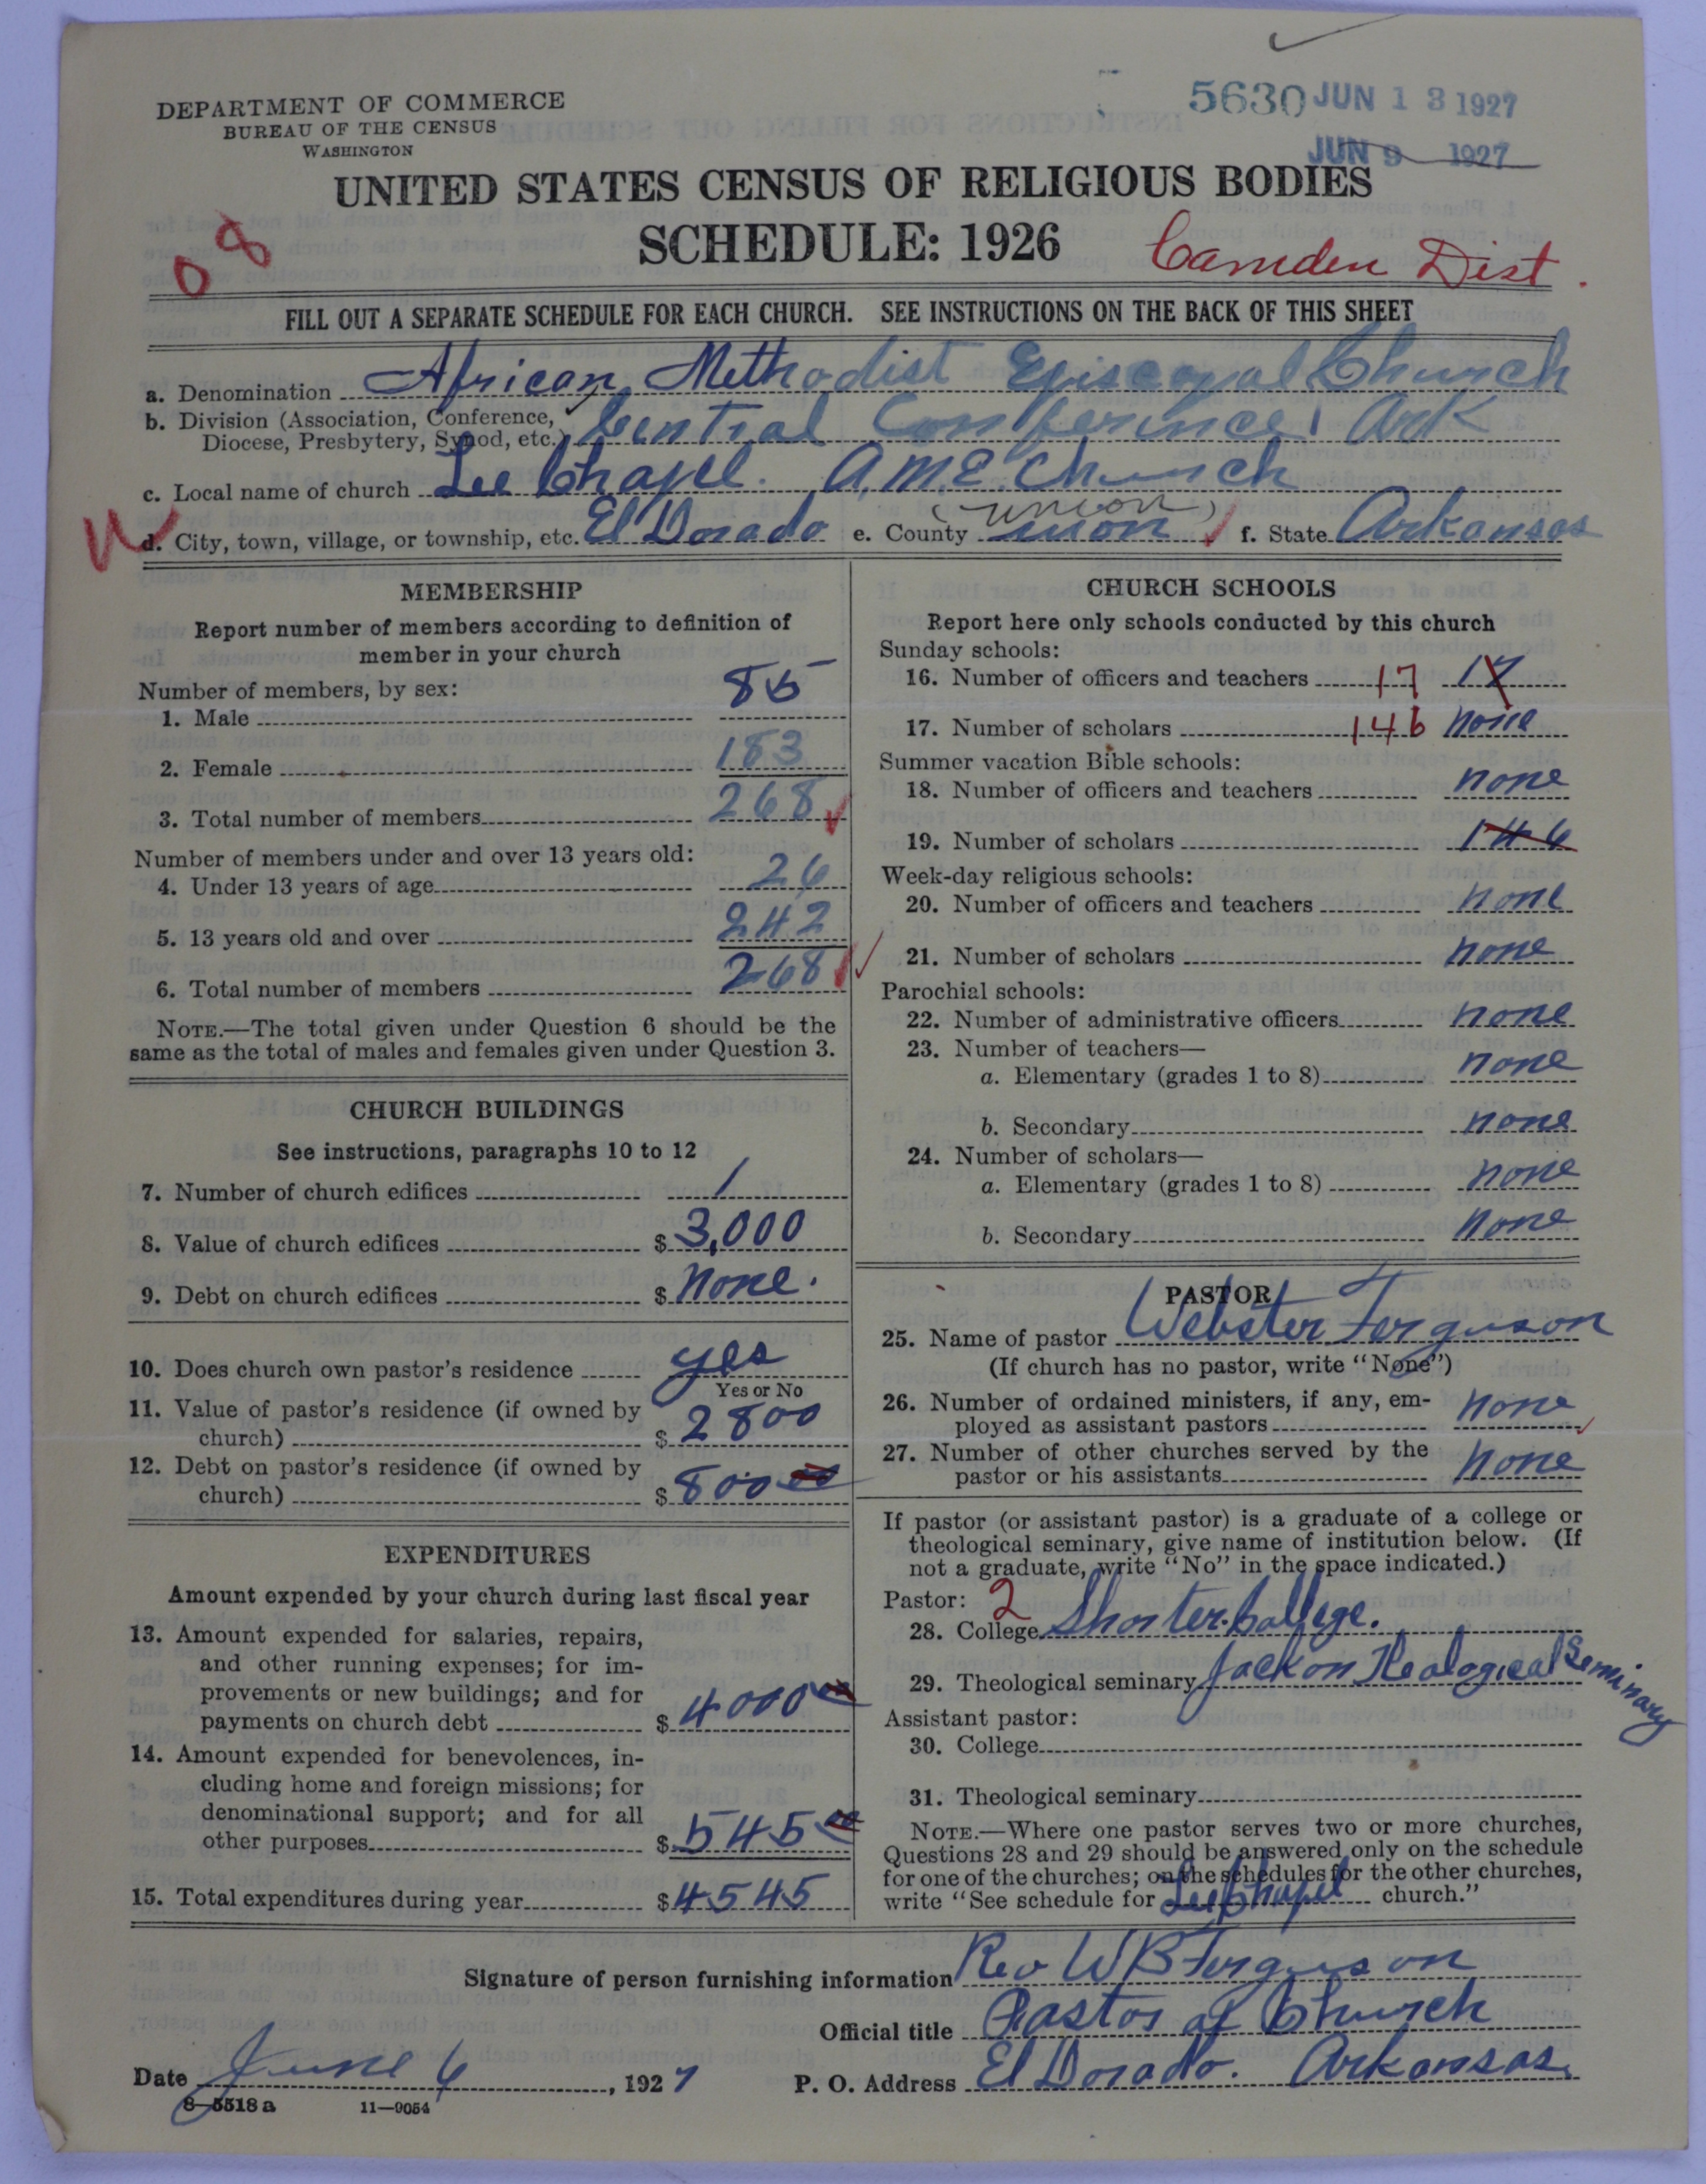 DEPARTMENT OF COMMERCE
BUREAU OF THE CENSUS
WASHINGTON
5630 JUN 13 1927
JUN 9 1927
UNITED STATES CENSUS OF RELIGIOUS BODIES
SCHEDULE: 1926
08
Camden Dist.
FILL OUT A SEPARATE SCHEDULE FOR EACH CHURCH. SEE INSTRUCTIONS ON THE BACK OF THIS SHEET
a. Denomination African Methodist Episcopal Church
b. Division (Association, Conference,
Diocese, Presbytery, Synod, etc.) Central Conference Ark
c. Local name of church Lee Chapel. A.M.E. Church
(Union)
d. City, town, village, or township, etc. El Dorado e. County union f. State Arkansas
MEMBERSHIP
Report number of members according to definition of
member in your church
Number of members, by sex:
1. Male 85
2. Female 183
3. Total number of members 268
Number of members under and over 13 years old:
4. Under 13 years of age 26
5. 13 years old and over 242
6. Total number of members 268
NOTE.—The total given under Question 6 should be the
same as the total of males and females given under Question 3.
CHURCH BUILDINGS
See instructions, paragraphs 10 to 12
7. Number of church edifices 1
8. Value of church edifices $ 3,000
9. Debt on church edifices $ None.
10. Does church own pastor's residence yes
Yes or No
11. Value of pastor's residence (if owned by
church) $ 2800
12. Debt on pastor's residence (if owned by
church) $ 800 00
EXPENDITURES
Amount expended by your church during last fiscal year
13. Amount expended for salaries, repairs,
and other running expenses; for im-
provements or new buildings; and for
payments on church debt $ 4000 00
14. Amount expended for benevolences, in-
cluding home and foreign missions; for
denominational support; and for all
other purposes $ 545 00
15. Total expenditures during year $ 4545
CHURCH SCHOOLS
Report here only schools conducted by this church
Sunday schools:
16. Number of officers and teachers 17 17
17. Number of scholars 146 none
Summer vacation Bible schools:
18. Number of officers and teachers none
19. Number of scholars 146
Week-day religious schools:
20. Number of officers and teachers none
21. Number of scholars none
Parochial schools:
22. Number of administrative officers none
23. Number of teachers—
a. Elementary (grades 1 to 8) none
b. Secondary none
24. Number of scholars—
a. Elementary (grades 1 to 8) none
b. Secondary None
PASTOR
25. Name of pastor Webster Ferguson
(If church has no pastor, write "None")
26. Number of ordained ministers, if any, em-
ployed as assistant pastors None
27. Number of other churches served by the
pastor or his assistants None
If pastor (or assistant pastor) is a graduate of a college or
theological seminary, give name of institution below. (If
not a graduate, write "No" in the space indicated.)
Pastor: 2
28. College Shorter College.
29. Theological seminary Jackon Thealogical Seminary
Assistant pastor:
30. College
31. Theological seminary
NOTE.—Where one pastor serves two or more churches,
Questions 28 and 29 should be answered only on the schedule
for one of the churches; on the schedules for the other churches,
write "See schedule for Lee Chapel church."
Signature of person furnishing information Rev W B Ferguson
Official title Pastor of Church
Date June 6, 1927 P. O. Address El Dorado. Arkansas
8—5518 a 11—9054